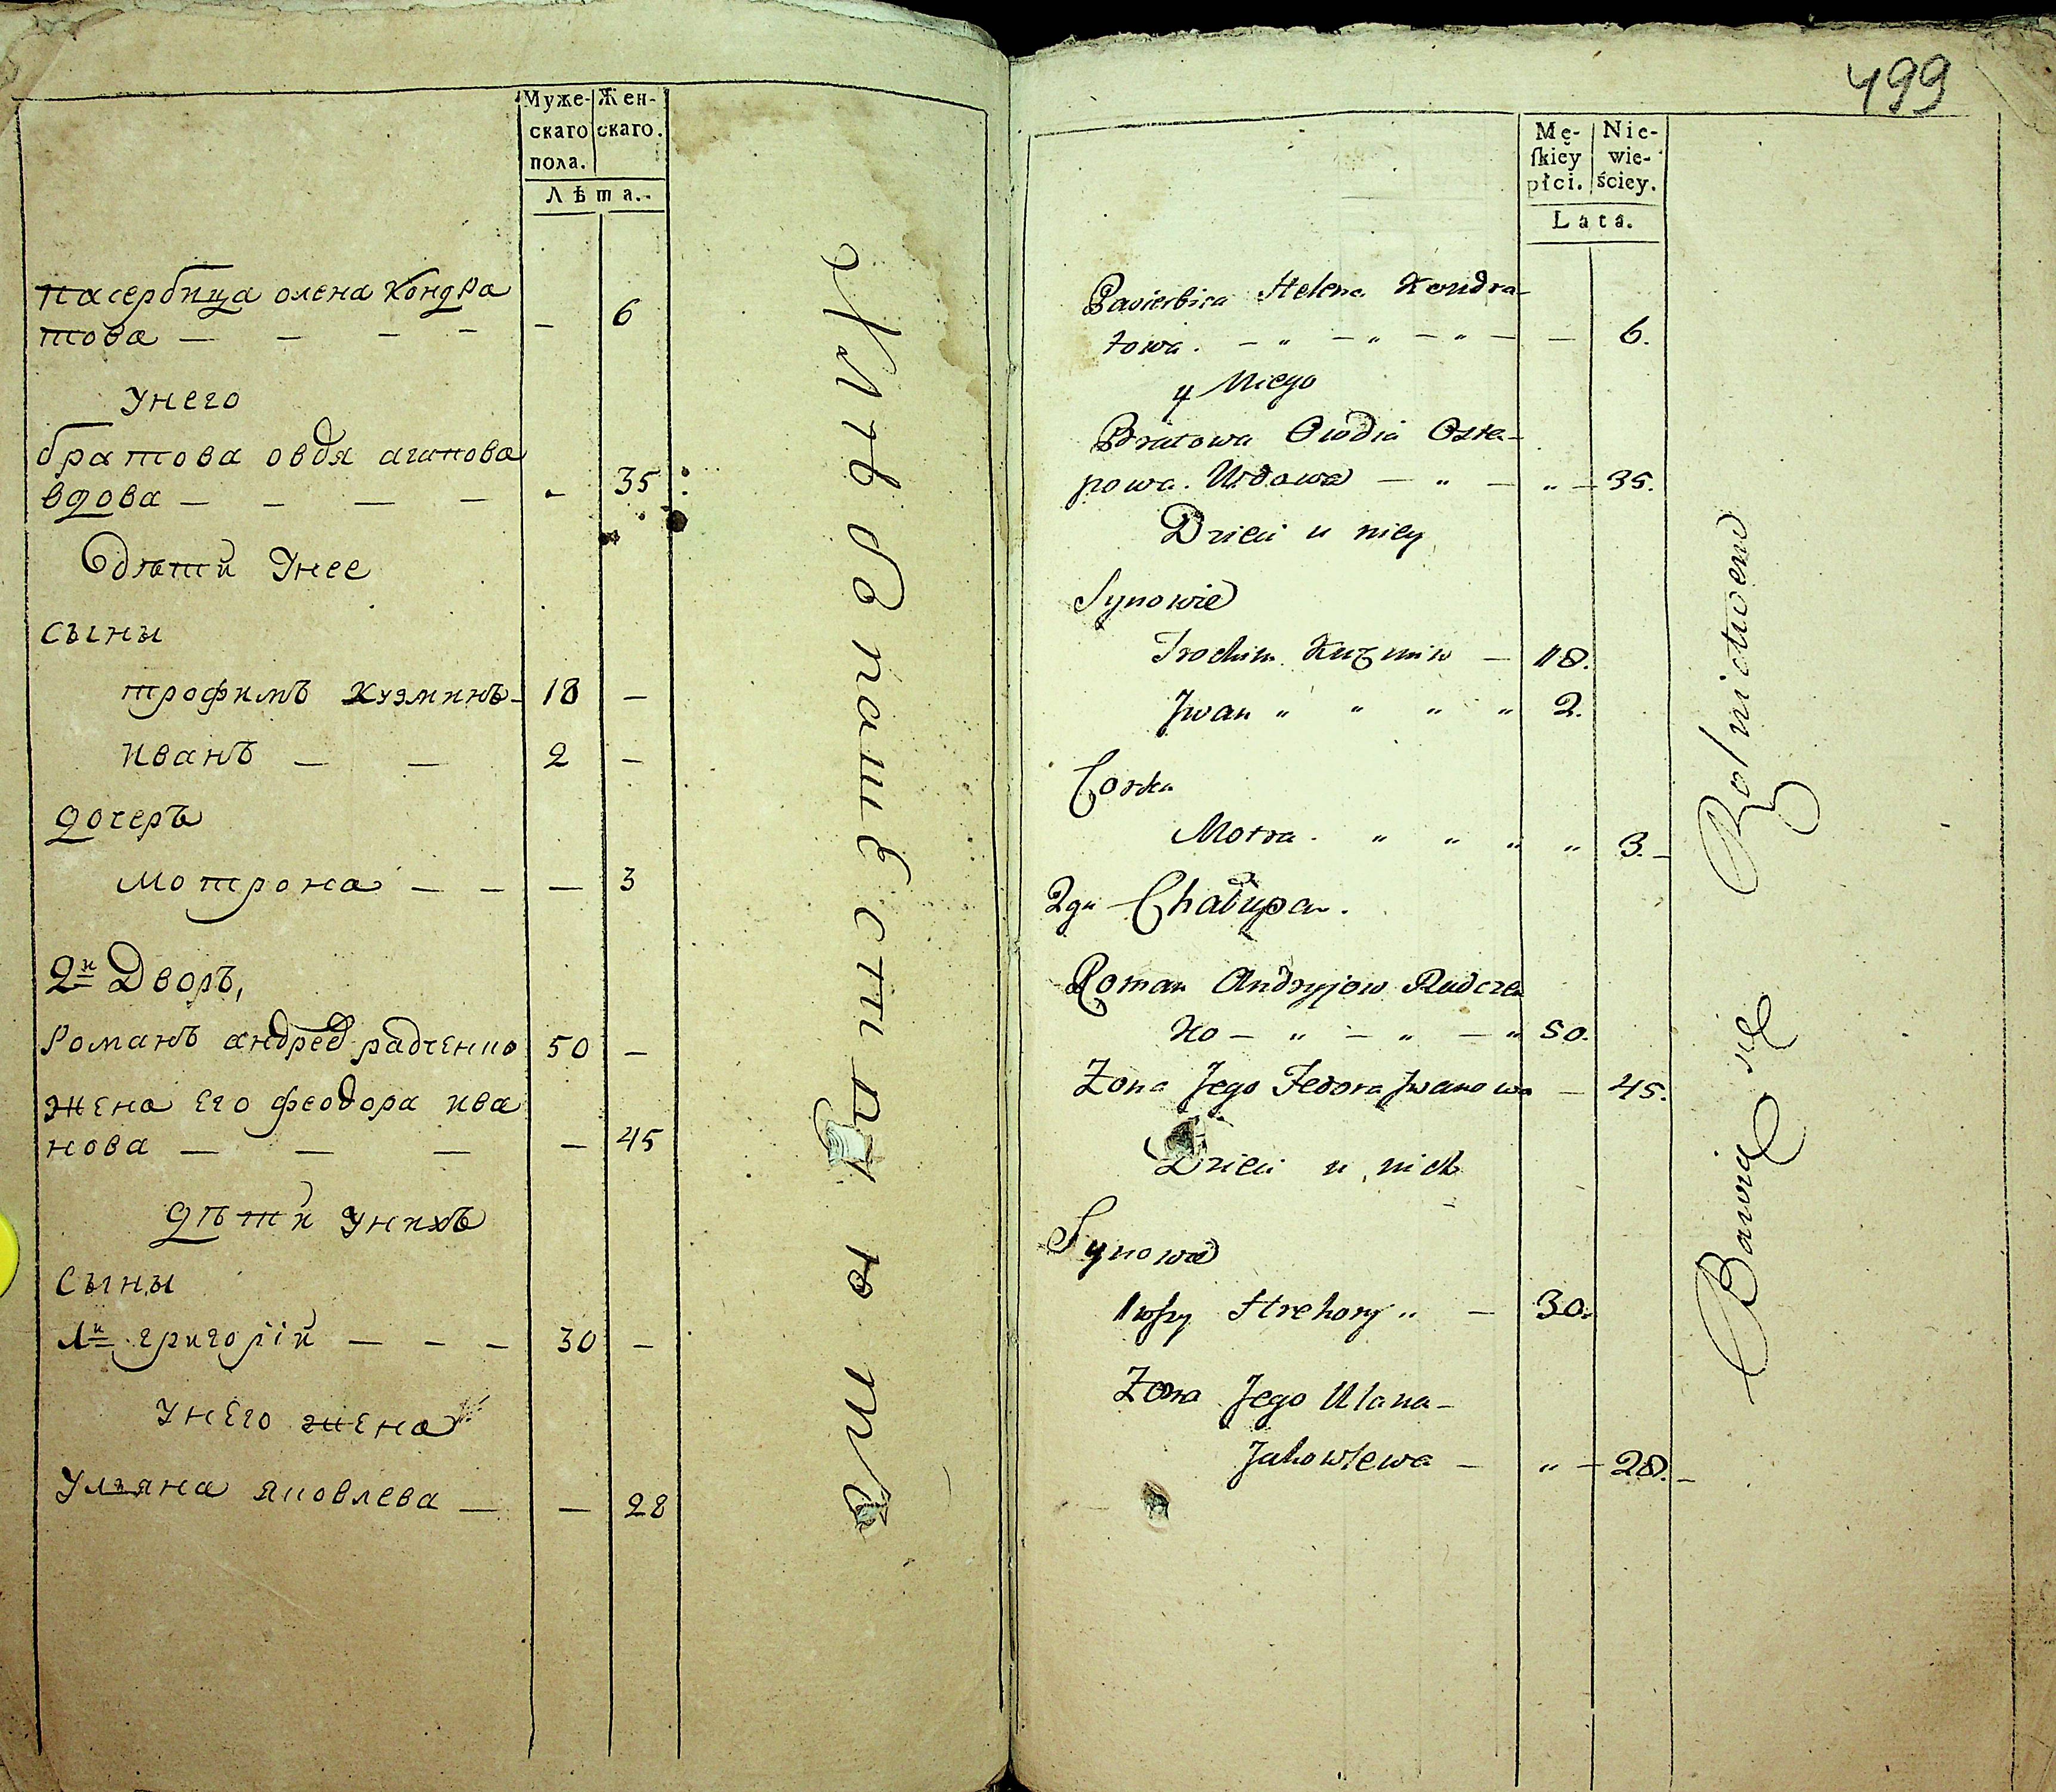 Муже-
скаго
пола.
Жен-
скаго.
Лѣта.
пасербица олена Кондра
това — — — — — 6
Унего
братова овдя агапова
вдова — — — — - 35
дѣти Унее
сыны
трофимъ кузминъ - 18 —
иванъ — — 2 —
дочеръ
мотрона — — — 3
2й Дворъ,
Романъ андреев радченко 50 —
жена Его феодора ива
нова — — — — 45
дѣти унихъ
Сыны
1й григорій — — — 30 —
унЕго жена
Ульяна яковлева — — 28
Хлѣбопашеством
499
Mę-
skiey
płci.
Nie-
wie-
ściey.
Lata.
Pasierbica Helena Kondra-
towa. — „ — „ — „ — — 6.
y Niego
Bratowa Owdia Osta-
powa. Wdowa — „ — „ — 35.
Dzieci u niey
Synowie
Trochim Kuzmin — 18.
Jwan „ „ „ „ 2.
Corka
Motra. „ „ „ „ 3. –
2ga Chałupa.
Roman Andryjow Radczen
ko — „ — „ — „ 50.
Zona Jego Fedora Jwanowa — 45.
Dzieci u nich
Synowie
1wszy Hrehory „ — 30.
Zona Jego Ulana —
Jakowlewa — „ — 28. –
Bawią się Rolnictwem